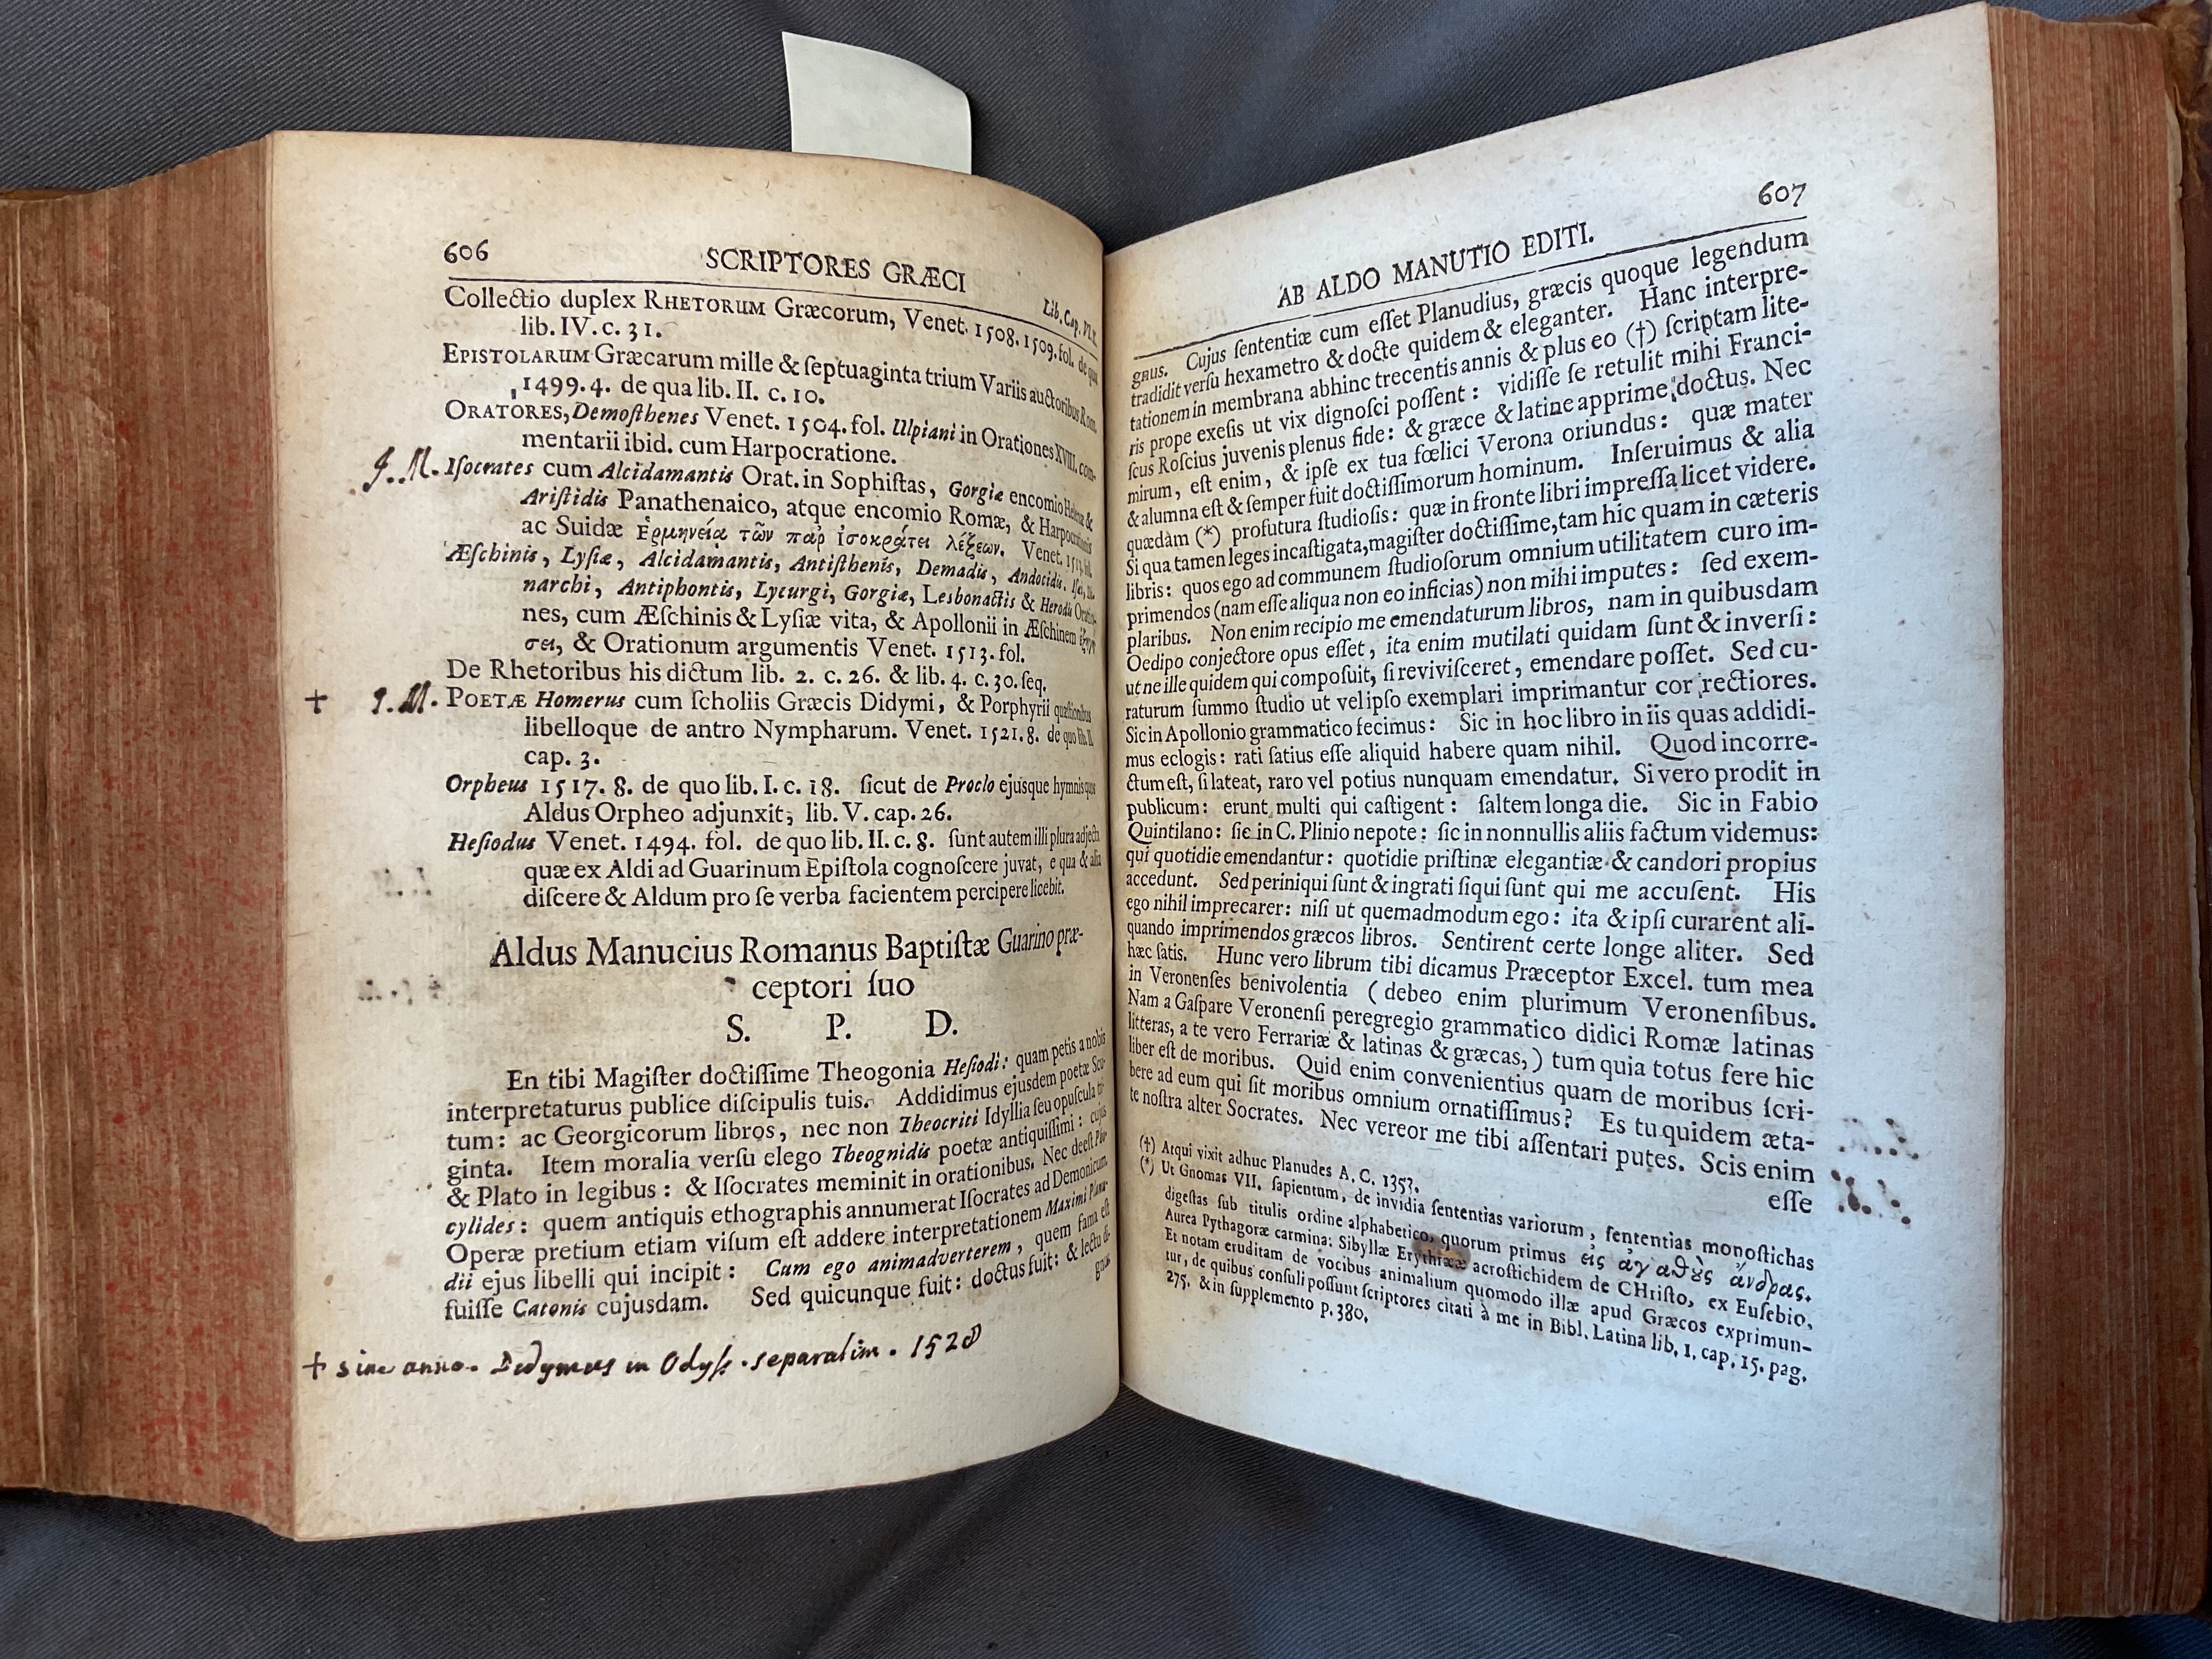 606
SCRIPTORES GRÆCI
Lib. Cap. VI.
Collectio duplex RHETORUM Græcorum, Venet. 1508. 1509. fol. de qua
lib. IV. c. 31.
EPISTOLARUM Græcarum mille & ſeptuaginta trium Variis auctoribus Rom.
1499. 4. de qua lib. II. c. 10.
ORATORES, Demoſthenes Venet. 1504. fol. Ulpiani in Orationes XVIII. com-
mentarii ibid. cum Harpocratione.
J. M. Iſocrates cum Alcidamantis Orat. in Sophiſtas, Gorgiæ encomio Helenæ &
Ariſtidis Panathenaico, atque encomio Romæ, & Harpocrationis
ac Suidæ Ἑρμηνεία τῶν παρ ἰσοκράτει λέξεων. Venet. 1513. fol.
Æſchinis, Lyſiæ, Alcidamantis, Antiſthenis, Demadis, Andocidis, Iſæi,
narchi, Antiphontis, Lycurgi, Gorgiæ, Lesbonactis & Herodis Oratio-
nes, cum Æſchinis & Lyſiæ vita, & Apollonii in Æſchinem
σει, & Orationum argumentis Venet. 1513. fol.
De Rhetoribus his dictum lib. 2. c. 26. & lib. 4. c. 30. ſeq.
+ J. M. POETÆ Homerus cum ſcholiis Græcis Didymi, & Porphyrii quæſtionibus
libelloque de antro Nympharum. Venet. 1521. 8. de quo lib. II.
cap. 3.
Orpheus 1517. 8. de quo lib. I. c. 18. ſicut de Proclo ejusque hymnis quos
Aldus Orpheo adjunxit; lib. V. cap. 26.
Heſiodus Venet. 1494. fol. de quo lib. II. c. 8. ſunt autem illi plura adjecta
quæ ex Aldi ad Guarinum Epiſtola cognoſcere juvat, e qua & alia
diſcere & Aldum pro ſe verba facientem percipere licebit.
Aldus Manucius Romanus Baptiſtæ Guarino præ-
ceptori ſuo
S. P. D.
En tibi Magiſter doctiſſime Theogonia Heſiodi: quam petis a nobis
interpretaturus publice diſcipulis tuis. Addidimus ejusdem poetæ Scu-
tum: ac Georgicorum libros, nec non Theocriti Idyllia ſeu opuſcula tri-
ginta. Item moralia verſu elego Theognidis poetæ antiquiſſimi: cujus
& Plato in legibus: & Iſocrates meminit in orationibus. Nec deeſt Pho-
cylides: quem antiquis ethographis annumerat Iſocrates ad Demonicum.
Operæ pretium etiam viſum eſt addere interpretationem Maximi Planu-
dii ejus libelli qui incipit: Cum ego animadverterem, quem fama eſt
fuiſſe Catonis cujusdam. Sed quicunque fuit: doctus fuit: & lectu di-
gnus
+ sine anno. Didymus in Odyſſ. separatim. 1528
607
AB ALDO MANUTIO EDITI.
gnus. Cujus ſententiæ cum eſſet Planudius, græcis quoque legendum
tradidit verſu hexametro & docte quidem & eleganter. Hanc interpre-
tationem in membrana abhinc trecentis annis & plus eo (†) ſcriptam lite-
ris prope exeſis ut vix dignoſci poſſent: vidiſſe ſe retulit mihi Franci-
ſcus Roſcius juvenis plenus fide: & græce & latine apprime doctus. Nec
mirum, eſt enim, & ipſe ex tua fœlici Verona oriundus: quæ mater
& alumna eſt & ſemper fuit doctiſſimorum hominum. Inſeruimus & alia
quædam (*) profutura ſtudioſis: quæ in fronte libri impreſſa licet videre.
Si qua tamen leges incaſtigata, magiſter doctiſſime, tam hic quam in cæteris
libris: quos ego ad communem ſtudioſorum omnium utilitatem curo im-
primendos (nam eſſe aliqua non eo inficias) non mihi imputes: ſed exem-
plaribus. Non enim recipio me emendaturum libros, nam in quibusdam
Oedipo conjectore opus eſſet, ita enim mutilati quidam ſunt & inverſi:
ut ne ille quidem qui compoſuit, ſi reviviſceret, emendare poſſet. Sed cu-
raturum ſummo ſtudio ut vel ipſo exemplari imprimantur correctiores.
Sic in Apollonio grammatico fecimus: Sic in hoc libro in iis quas addidi-
mus eclogis: rati ſatius eſſe aliquid habere quam nihil. Quod incorre-
ctum eſt, ſi lateat, raro vel potius nunquam emendatur. Si vero prodit in
publicum: erunt multi qui caſtigent: ſaltem longa die. Sic in Fabio
Quintilano: ſic in C. Plinio nepote: ſic in nonnullis aliis factum videmus:
qui quotidie emendantur: quotidie priſtinæ elegantiæ & candori propius
accedunt. Sed periniqui ſunt & ingrati ſiqui ſunt qui me accuſent. His
ego nihil imprecarer: niſi ut quemadmodum ego: ita & ipſi curarent ali-
quando imprimendos græcos libros. Sentirent certe longe aliter. Sed
hæc ſatis. Hunc vero librum tibi dicamus Præceptor Excel. tum mea
in Veronenſes benivolentia (debeo enim plurimum Veronenſibus.
Nam a Gaſpare Veronenſi peregregio grammatico didici Romæ latinas
litteras, a te vero Ferrariæ & latinas & græcas,) tum quia totus fere hic
liber eſt de moribus. Quid enim convenientius quam de moribus ſcri-
bere ad eum qui ſit moribus omnium ornatiſſimus? Es tu quidem æta-
te noſtra alter Socrates. Nec vereor me tibi aſſentari putes. Scis enim
eſſe
(†) Atqui vixit adhuc Planudes A. C. 1353.
(*) Ut Gnomas VII. ſapientum, de invidia ſententias variorum, ſententias monoſtichas
digeſtas ſub titulis ordine alphabetico, quorum primus εἰς ἀγαθȣ̀ς ἄνδρας.
Aurea Pythagoræ carmina: Sibyllæ Erythrææ acroſtichidem de CHriſto, ex Euſebio,
Et notam eruditam de vocibus animalium quomodo illæ apud Græcos exprimun-
tur, de quibus conſuli poſſunt ſcriptores citati à me in Bibl. Latina lib. 1. cap. 15. pag.
275. & in ſupplemento p. 380.